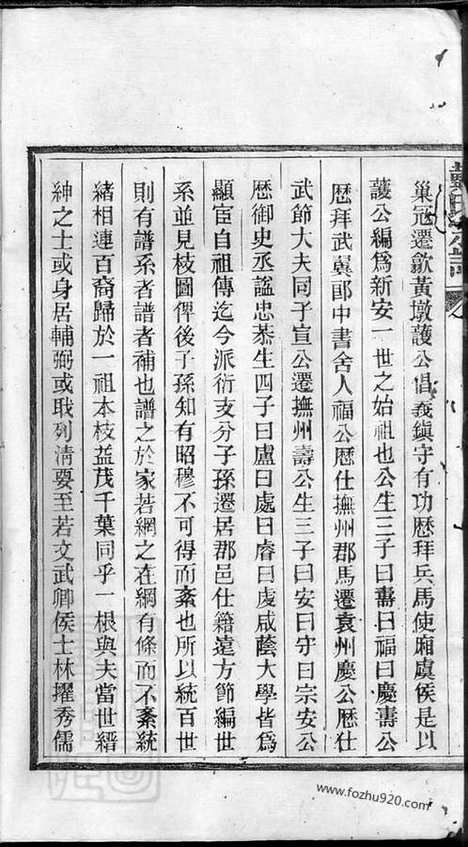 巢冠遷歙黃墩護公倡義鎮守有功歴拜兵馬使廂虞侯是以
護公編爲新安一世之始祖也公生三子曰壽曰福曰慶壽公
歴拜武翼郎中書舍人福公歴仕撫州郡馬遷袁州慶公歴仕
武節大夫同子宣公遷撫州壽公生三子曰安曰守曰宗安公
歴御史丞謚忠㳟生四子曰盧曰處曰睿曰虔咸蔭大學皆爲
顯臣自祖傳迄今派衍支分子孫遷居郡邑仕籍遠方節編世
系並見枝圖俾後子孫知有昭穆不可得而紊也所以統百世
則有譜系者譜者補也譜之於家若網之在綱有條而不紊統
緒相連百裔歸於一祖本枝益茂千葉同乎一根與夫當世縉
紳之士或身居輔弼或職列清要至若文武卿侯士林擢秀儒
www.fozhu920.com